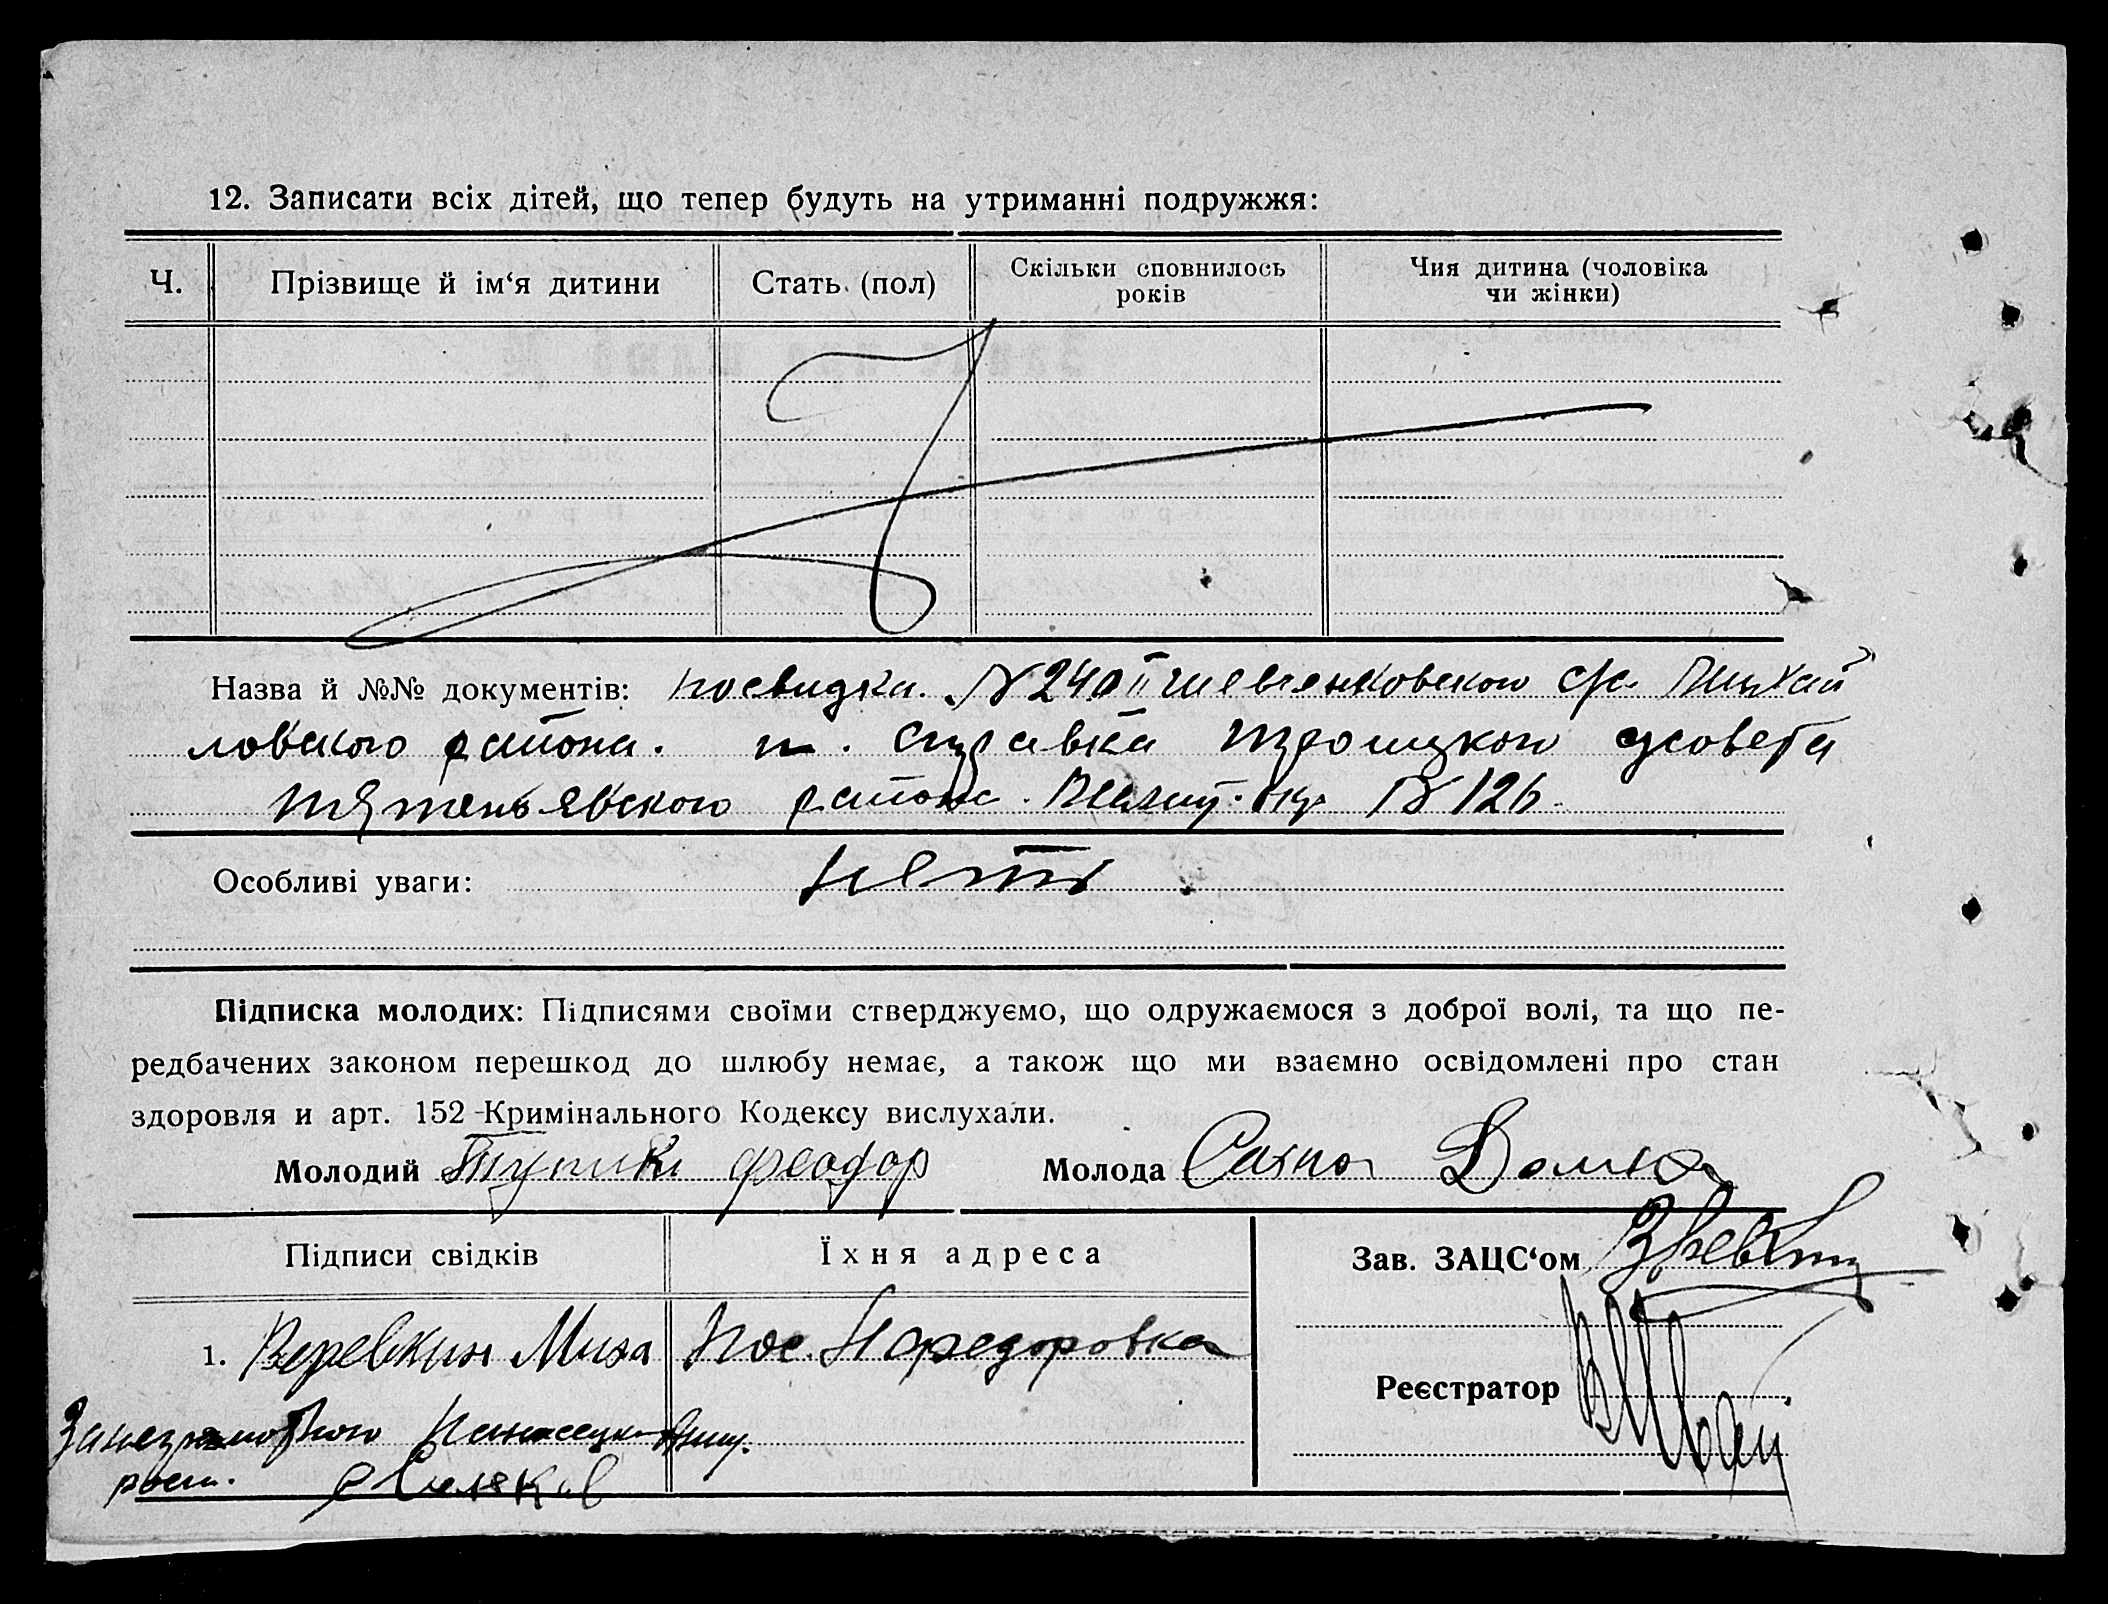 12. Записати всіх дітей, що тепер будуть на утриманні подружжя:
Ч. Прізвище й ім‘я дитини Стать (пол) Скільки сповнилось років Чия дитина (чоловіка чи жінки)
Назва й №№ документів: посвидка. N 240 шевченковского с/с. Михай
ловского района. справка Троицкого с/совета
района. N 126
Особливі уваги: нет
Підписка молодих: Підписями своїми стверджуємо, що одружаємося з доброї волі, та що пе-
редбачених законом перешкод до шлюбу немає, а також що ми взаємно освідомлені про стан
здоровля и арт. 152 -Кримінального Кодексу вислухали.
Молодий Феодор Молода Домна
Підписи свідків Їхня адреса Зав. ЗАЦС‘ом
1. Веревкин Миха Пос. Нафедоровка
Реєстратор
За неграмотного
росп.